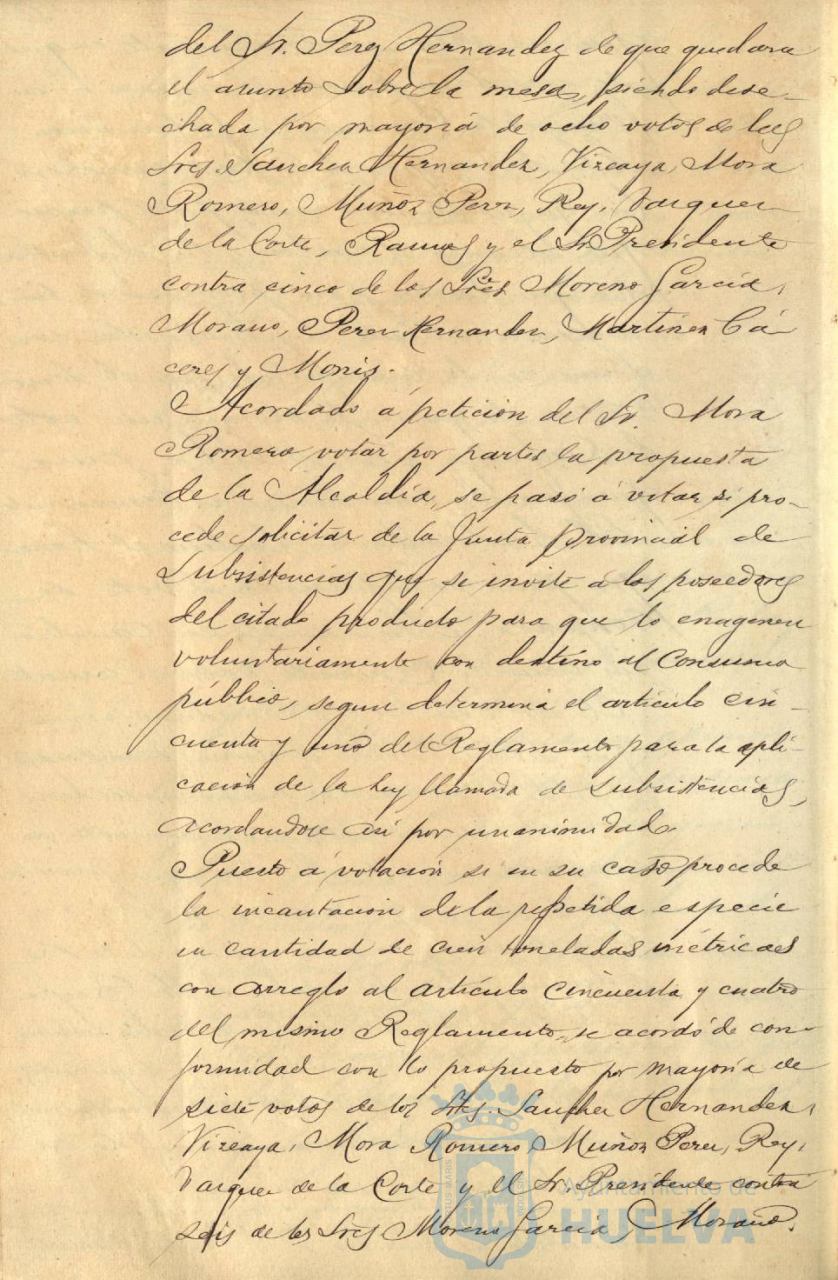 del Sr. Perez Hernandez de que quedara
el asunto sobre la mesa, siendo dese-
chada por mayoria de ocho votos de los
Sres. Sanchez Hernandez, Vizcaya, Mora
Romero, Muñoz Perez, Rey, Vazquez
de la Corte, Ramos y el Sr. Presidente
contra cinco de los Sres Moreno Garcia,
Morano, Perez Hernandez, Martinez Cá-
ceres y Monis.
Acordado á petición del Sr. Mora
Romero, votar por partes la propuesta
de la Alcaldia, se pasó á votar si pro-
cede solicitar de la Junta provincial de
Subsistencias que se invite á los poseedores
del citado producto para que lo enagenen
voluntariamente con destino al consumo
público, segun determina el articulo cin-
cuenta y uno del Reglamento para la apli-
cación de la ley llamada de Subsistencias,
acordandose asi por unanimidad.
Puesto á votación si en su caso procede
la incautación de la repetida especie
en cantidad de cien toneladas métricas
con arreglo al artículo cincuenta y cuatro
del mismo Reglamento, se acordó de con-
formidad con lo propuesto por mayoria de
siete votos de los Sres. Sanchez Hernandez,
Vizcaya, Mora Romero, Muñoz Perez, Rey,
Vazquez de la Corte y el Sr. Presidente contra
seis de los Sres Moreno Garcia, Morano.
Ayuntamiento de
HUELVA